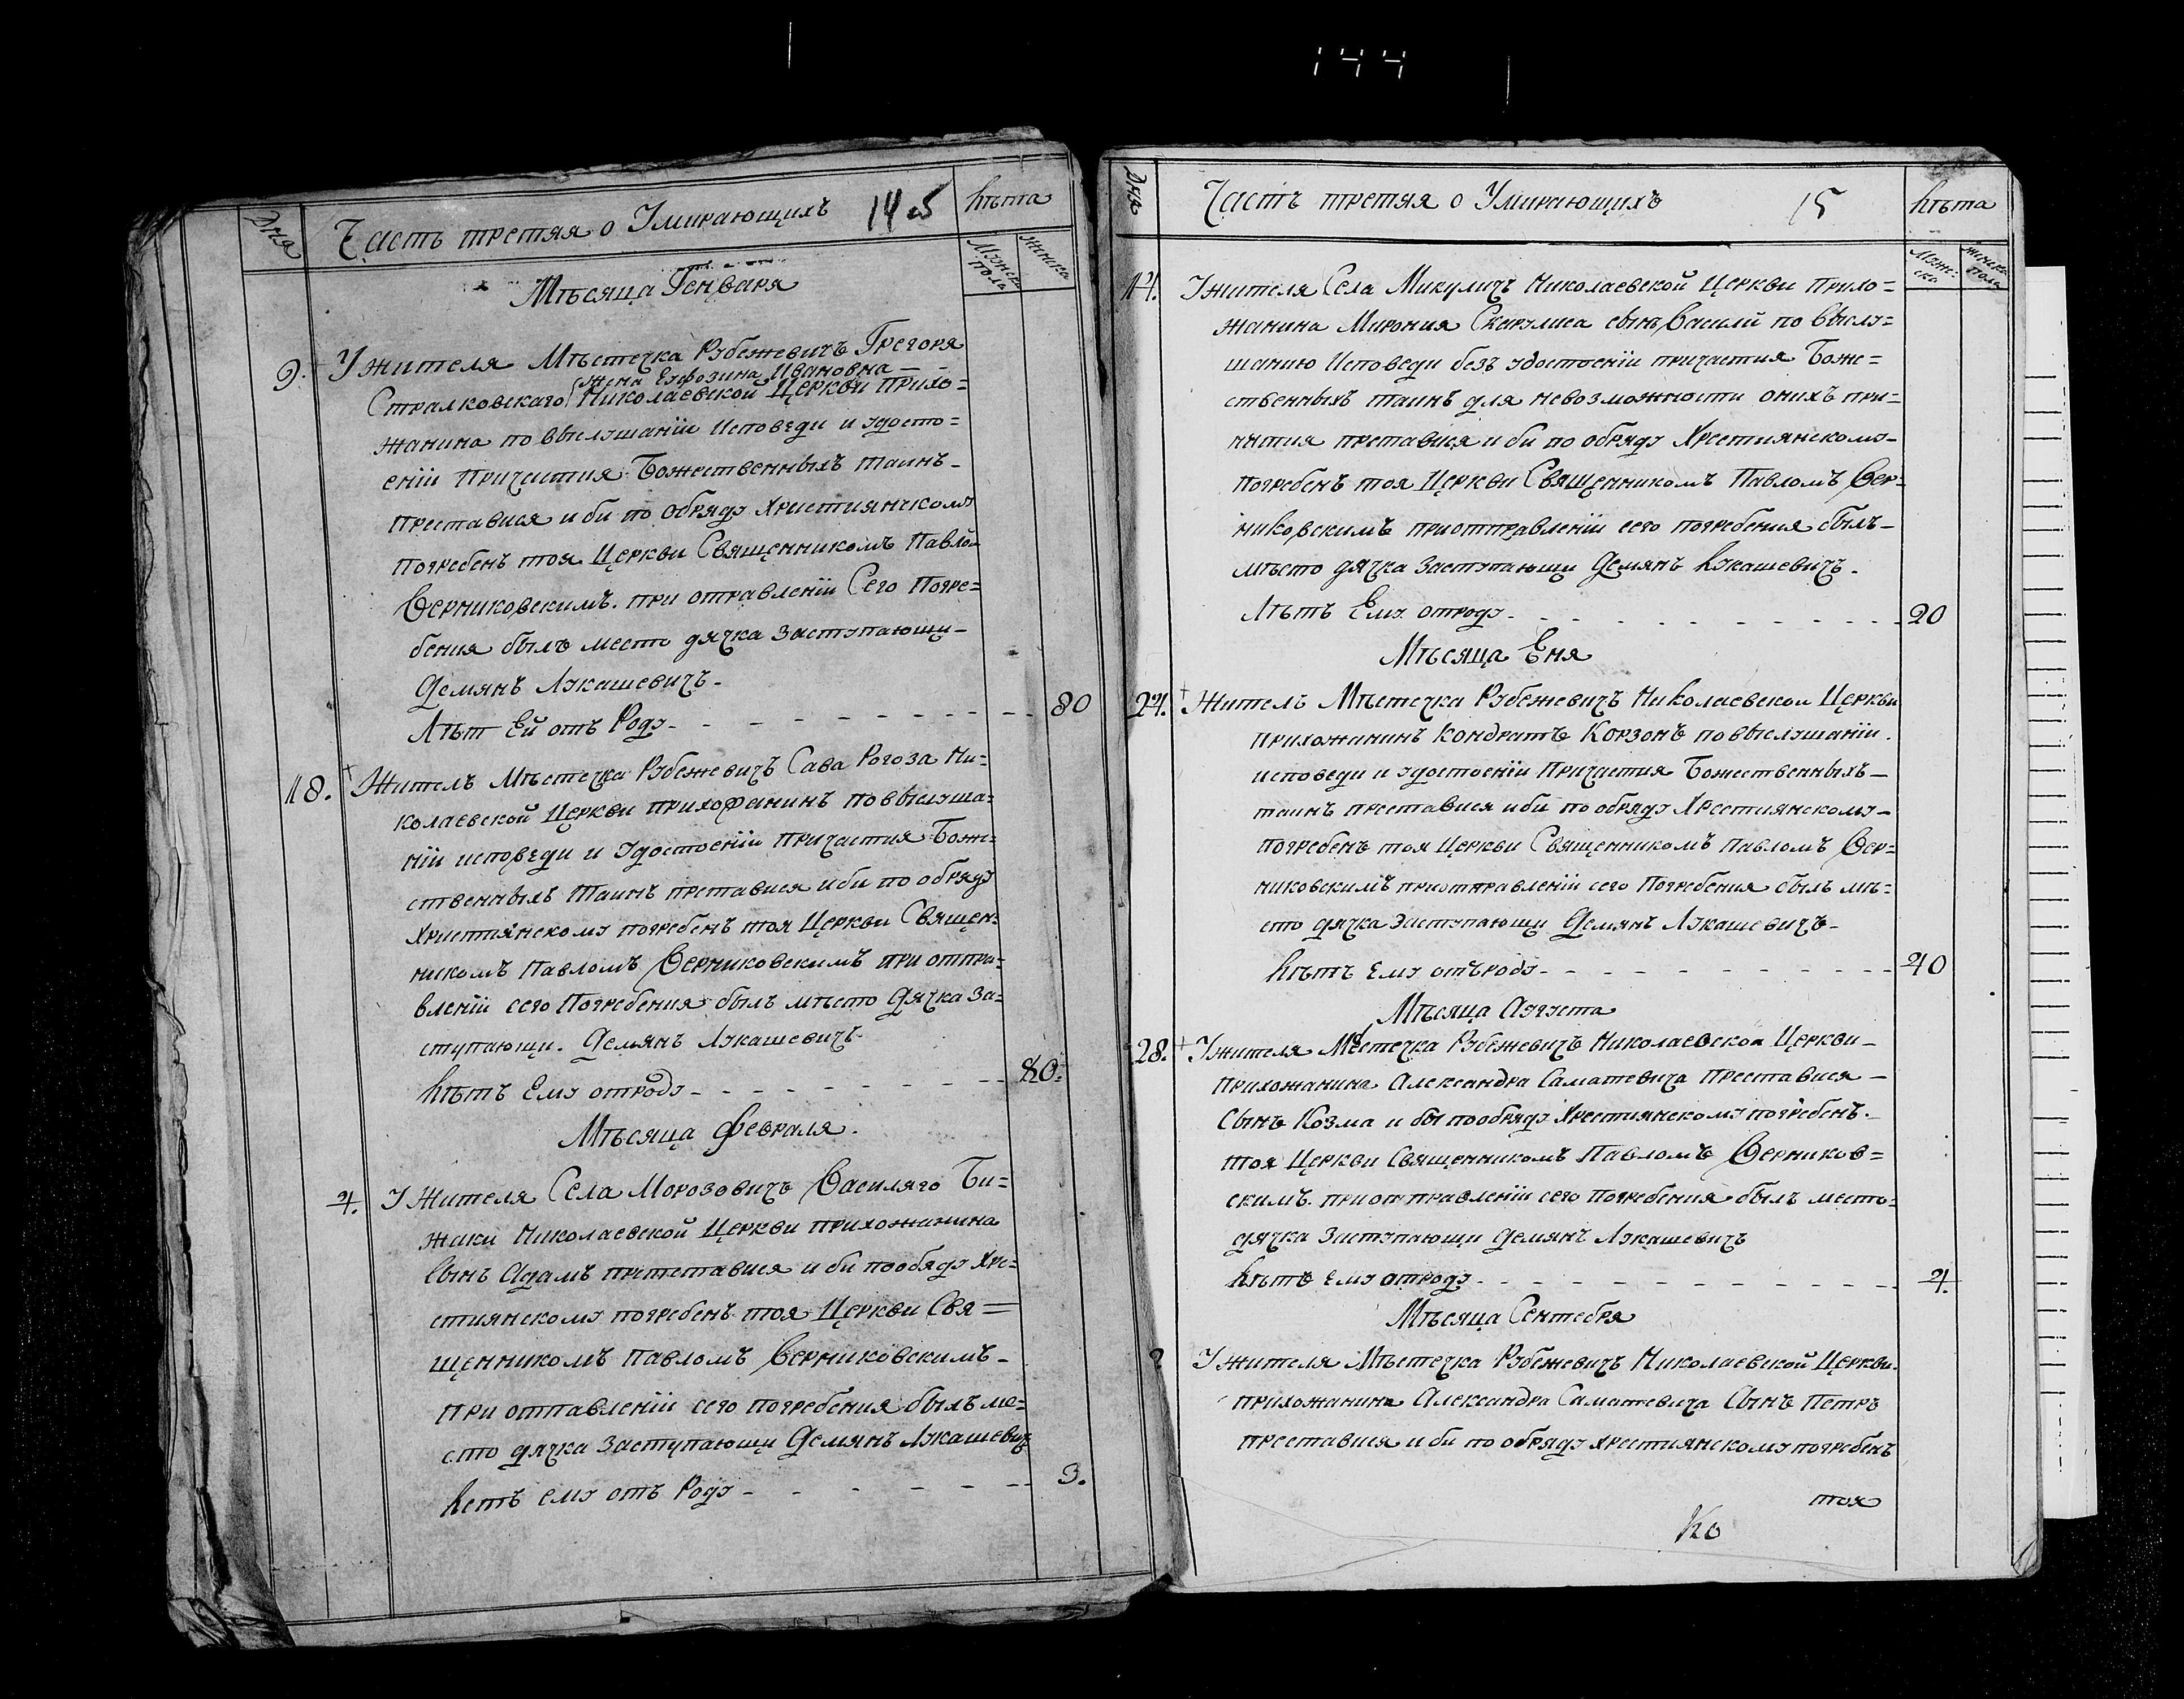 144
Дня
Часть третяя о Умирающихъ
145
Лѣта
Мужеска пола
Женска
Мѣсяца Генваря
9. Ужителя Мѣстечка Рубежевичъ Грегоря
жена Еуфозина Ивановна
Стралковскаго Николаевской Церкви Прихо=
жанина по выслушаніи Исповеди и удосто=
еніи Причастия Божественныхъ таинъ
Преставися и би по Обряду Християнскому
Погребенъ тоя Церкви Священникомъ Павло
Верниковскимъ. при отравленіи Сего Погре=
бения былъ место дячка Заступающи
Демянъ Лукашевичъ
Лѣт Ей отъ Роду 80
18. Жителъ Мѣстечка Рубежевичъ Сава Рогоза Ни=
колаевской Церкви прихофанинъ по выслуша=
ніи исповеди и удостоеніи причастия Боже=
ственныхъ Таинъ претавися и би по обряду
Християнскому погребенъ тоя Церкви Священ=
никомъ Павломъ Верниковскимъ при оттра=
вленіи сего Погребения былъ мѣсто Дячка За=
ступающи. Демянъ Лукашевичъ
Лѣтъ Ему отроду 80.
Мѣсяца февраля.
4. УЖителя Села Морозовичъ Василяго Би=
жаки Николаевской Церкви прихожанина
Сынъ Адамъ претставися и би пообяду Хре=
стиянскому погребенъ тоя Церкви Свя=
щенникомъ Павломъ Верниковскимъ
при отпавленіи сего погребения былъ ме=
сто дячка Заступающи Демянъ Лукашевич
Летъ ему отъ Роду 3.
Дня
Часть третяя о Умирающихъ
15
Лѣта
Муже=
ска
женска
пола
14. Ужителя Села Микуличъ Николаевской Церкви Прихо=
жанина Мирония Скерулиса сынъ Василй по выслу=
шанию Исповеди безъ удостоеніи причастия Боже=
ственныхъ таинъ для невозможности онихъ при=
нятия претавися и би по обряду Хрестиянскому
Погребенъ тоя Церкви Священникомъ Павломъ Вер=
никовскимъ приоттравленіи сего погребения былъ
мѣсто дячка Заступающи Демянъ Лукашевичъ.
Лѣтъ Ему отроду 20
Мѣсяца Еня
24. Жителъ Мѣстечка Рубежевичъ Николаевскои Церкви
прихожанинъ Кондратъ Корзонъ по выслушаніи.
исповеди и удостоеніи Причастия Божественныхъ
таинъ преставися и би по обряду Хрестиянскому
погребенъ тоя Церкви Священникомъ Павломъ Вер=
никовскимъ приотправленіи сего Погребения былъ мѣ=
сто дячка Заступающи Демянъ Лукашевичъ
Лѣтъ Ему отъроду 40
Мѣсяца Августа
28. Ужителя Местечка Рубежевичъ Николаевской Церкви
прихожанина Александра Саматевича Преставися
Сынъ Козма и бы пообряду Хрестиянскому погребенъ.
тоя Церкви Священникомъ Павломъ Верников=
скимъ. приоттравленіи сего погребения былъ место
дячка Заступающи Демянъ Лукашевичъ
Лѣтъ Ему отроду 4.
Мѣсяца Сентебря
Ужителя Мѣстечка Рубежевичъ Николаевской Церкви
прихожанина Александра Саматевича Сынъ Петръ
преставися и би по обряду хрестиянскому погребенъ
тоя
Ко